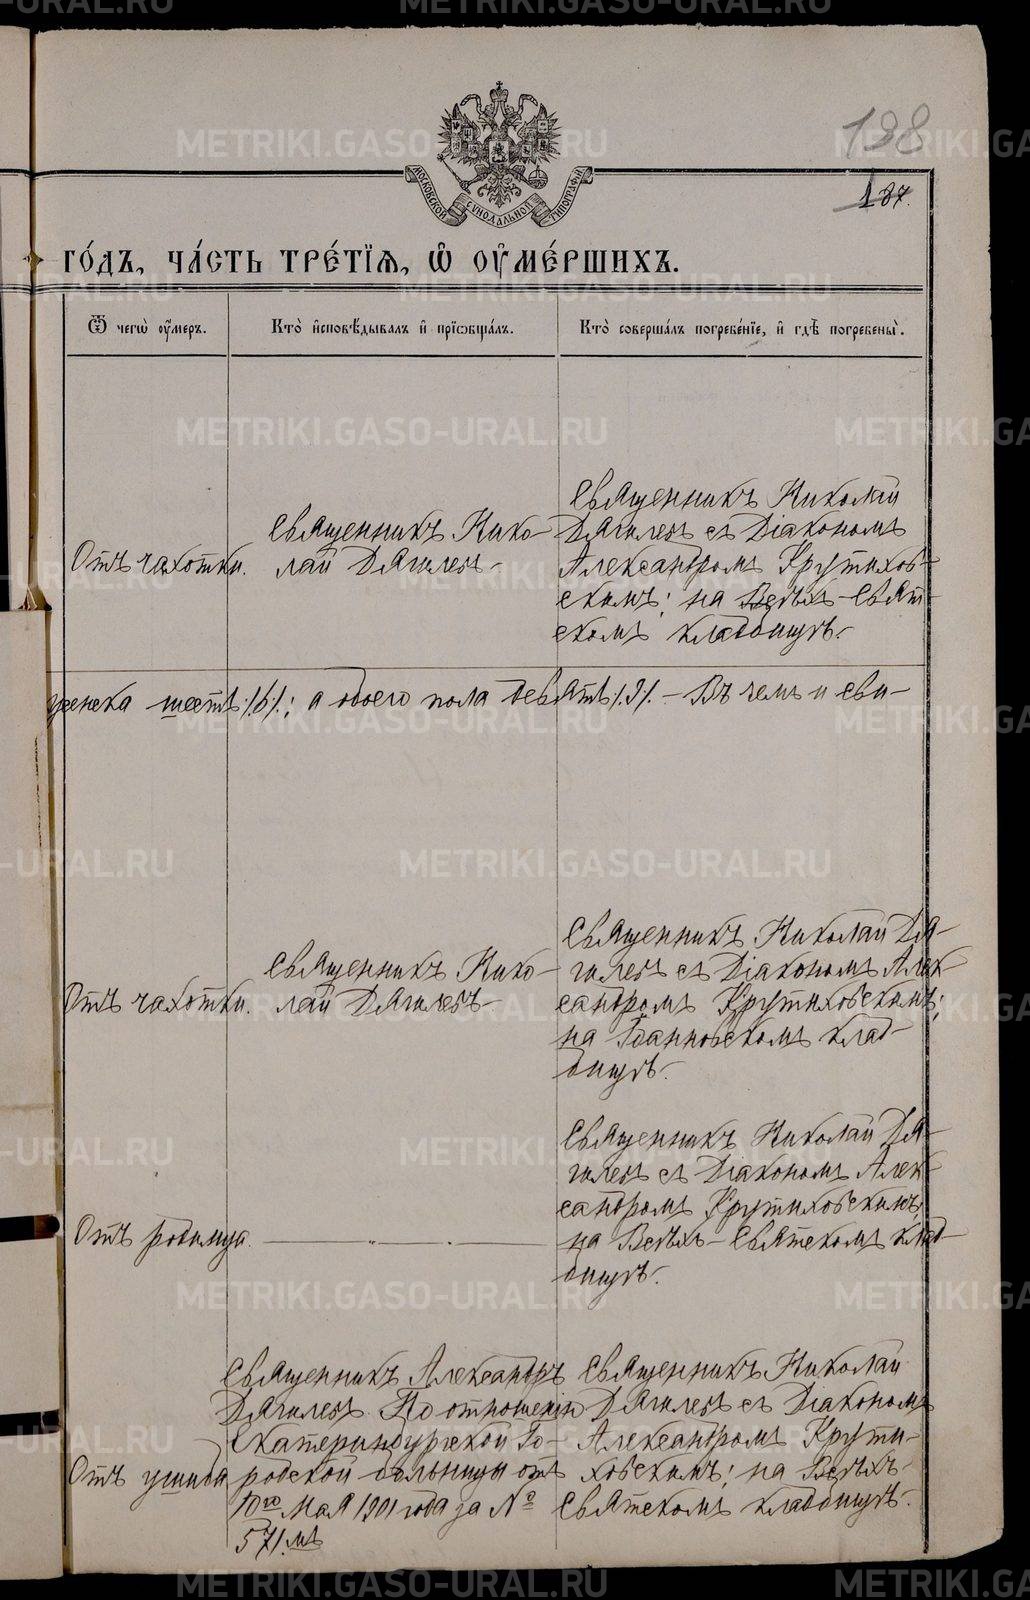 198
187.
МОСКОВСКОЙ СѴНОДАЛЬНОЙ ТИПОГРАФІИ
го́дъ, ча́сть тре́тїѧ, ѽ оу҆ме́ршихъ.
Ѿ чегѡ̀ оу҆́меръ.
Кто̀ и҆сповѣ́дывалъ и҆ прїѡбща́лъ.
Кто̀ соверша́лъ погребе́нїе, и҆ гдѣ̀ погребены̀.
Отъ чахотки.
Священникъ Нико-
лай Дягилевъ.-
Священникъ Николай
Дягилевъ съ Діакономъ
Александромъ Крутихов-
скимъ; на Всѣхъ-Свят-
скомъ кладбищѣ.-
женска шесть /6/.; а обоего пола девять /9/. - Въ чемъ и сви-
Отъ чахотки.
Священникъ Нико-
лай Дягилевъ.-
Священникъ Николай Дя-
гилевъ съ Діакономъ Алек-
сандромъ Крутиховскимъ;
на Іоанновскомъ клад-
бищѣ.-
Отъ родимца.
Священникъ Николай Дя-
гилевъ съ Діакономъ Алек-
сандромъ Крутиховскимъ;
на Всѣхъ-Святскомъ клад-
бищѣ.-
Отъ ушиба
Священникъ Александръ
Дягилевъ. По отношенію
Екатеринбургской Го-
родской больницы отъ
10го Мая 1901 года за №
571.мъ
Священникъ Николай
Дягилевъ съ Діакономъ
Александромъ Крути-
ховскимъ; на Всѣхъ-
Святскомъ кладбищѣ.-
METRIKI.GASO-URAL.RU